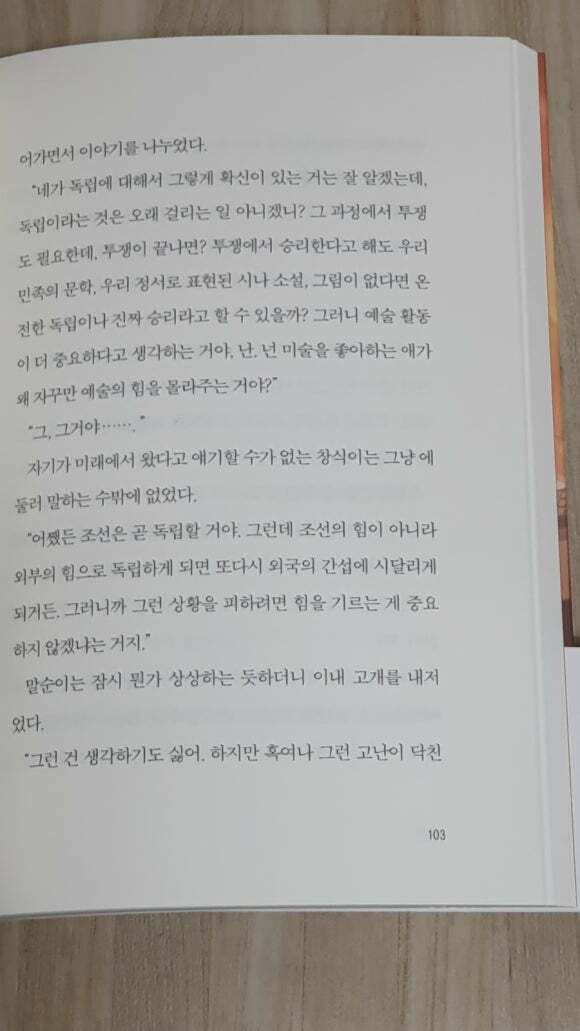 어가면서 이야기를 나누었다.
“네가 독립에 대해서 그렇게 확신이 있는 거는 잘 알겠는데,
독립이라는 것은 오래 걸리는 일 아니겠니? 그 과정에서 투쟁
도 필요한데, 투쟁이 끝나면? 투쟁에서 승리한다고 해도 우리
민족의 문학, 우리 정서로 표현된 시나 소설, 그림이 없다면 온
전한 독립이나 진짜 승리라고 할 수 있을까? 그러니 예술 활동
이 더 중요하다고 생각하는 거야, 난. 넌 미술을 좋아하는 애가
왜 자꾸만 예술의 힘을 몰라주는 거야?”
“그, 그거야……. ”
자기가 미래에서 왔다고 얘기할 수가 없는 창식이는 그냥 에
둘러 말하는 수밖에 없었다.
“어쨌든 조선은 곧 독립할 거야. 그런데 조선의 힘이 아니라
외부의 힘으로 독립하게 되면 또다시 외국의 간섭에 시달리게
되거든. 그러니까 그런 상황을 피하려면 힘을 기르는 게 중요
하지 않겠냐는 거지.”
말순이는 잠시 뭔가 상상하는 듯하더니 이내 고개를 내저
었다.
“그런 건 생각하기도 싫어. 하지만 혹여나 그런 고난이 닥친
103